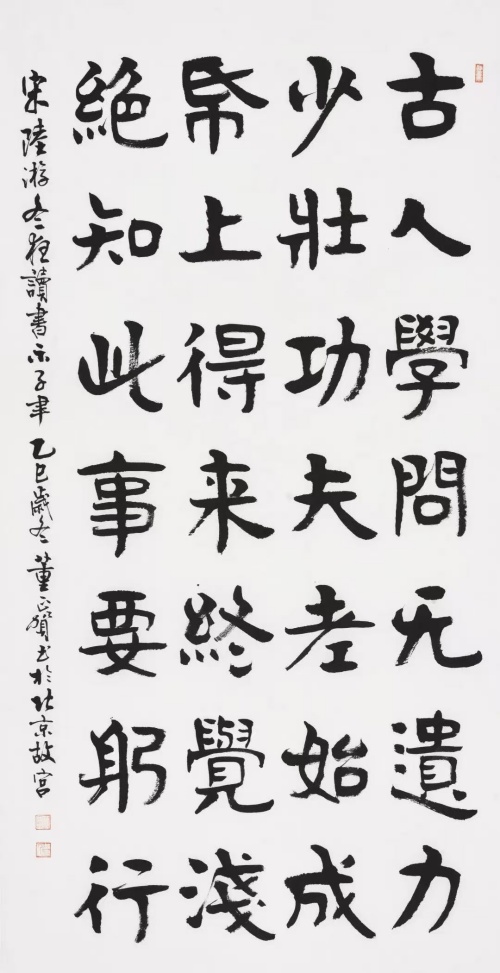 古人學問无遺力
少壯功夫老始成
帋上得来終覺淺
絶知此事要躬行
宋陸游冬夜讀書示子聿 乙巳歲冬 董正賀书於北京故宮